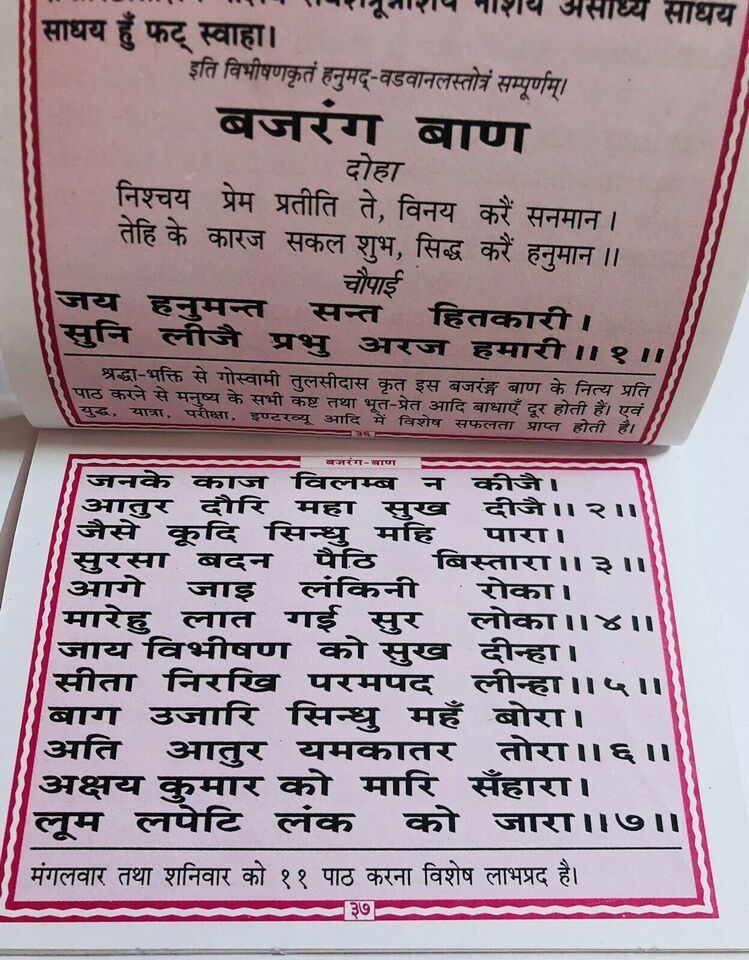 साधय हुँ फट् स्वाहा।
इति विभीषणकृतं हनुमद्-वडवानलस्तोत्रं सम्पूर्णम्।
बजरंग बाण
दोहा
निश्चय प्रेम प्रतीति ते, विनय करैं सनमान।
तेहि के कारज सकल शुभ, सिद्ध करैं हनुमान॥
चौपाई
जय हनुमन्त सन्त हितकारी।
सुनि लीजै प्रभु अरज हमारी॥१॥
श्रद्धा-भक्ति से गोस्वामी तुलसीदास कृत इस बजरङ्ग बाण के नित्य प्रति
पाठ करने से मनुष्य के सभी कष्ट तथा भूत-प्रेत आदि बाधाएँ दूर होती हैं। एवं
युद्ध, यात्रा, परीक्षा, इण्टरव्यू आदि में विशेष सफलता प्राप्त होती है।
३६
बजरंग-बाण
जनके काज विलम्ब न कीजै।
आतुर दौरि महा सुख दीजै॥२॥
जैसे कूदि सिन्धु महि पारा।
सुरसा बदन पैठि बिस्तारा॥३॥
आगे जाइ लंकिनी रोका।
मारेहु लात गई सुर लोका॥४॥
जाय विभीषण को सुख दीन्हा।
सीता निरखि परमपद लीन्हा॥५॥
बाग उजारि सिन्धु महँ बोरा।
अति आतुर यमकातर तोरा॥६॥
अक्षय कुमार को मारि सँहारा।
लूम लपेटि लंक को जारा॥७॥
मंगलवार तथा शनिवार को ११ पाठ करना विशेष लाभप्रद है।
३७